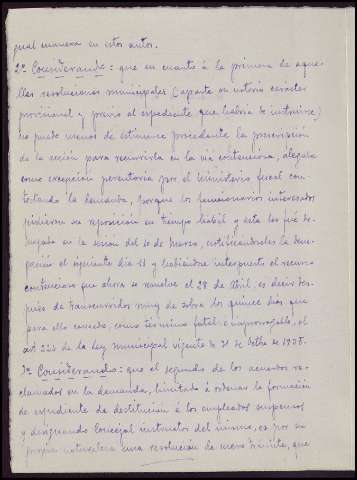 gual manera en estos autos.
2º Considerando: que en cuanto á la primera de aque-
llas resoluciones municipales (aparte su notorio carácter
provisional y previo al expediente que habria de instruirse)
no puede menos de estimarse procedente la prescripción
de la acción para recurrirla en la via contenciosa, alegada
como excepción perentoria por el Ministerio fiscal con-
testando la demanda, porque los funcionarios interesados
pidieron su reposición en tiempo habil y esta les fué de-
negada en la sesión del 10 de Marzo, notificandoseles la dene-
gación el siguiente dia 18 y habiendose interpuesto el recurso
contencioso que ahora se resuelve el 28 de Abril, es decir des-
pués de transcurridos muy de sobra los quince dias que
para ello concede, como término fatal é improrrogable, el
art 223 de la ley municipal vigente de 31 de Octbe de 1935.
3º Considerando: que el segundo de los acuerdos re-
clamados en la demanda, limitado á ordenar la formación
de expediente de destitución á los empleados suspensos
y designando Concejal instructor del mismo, es por su
propia naturaleza una resolución de mero trámite, que